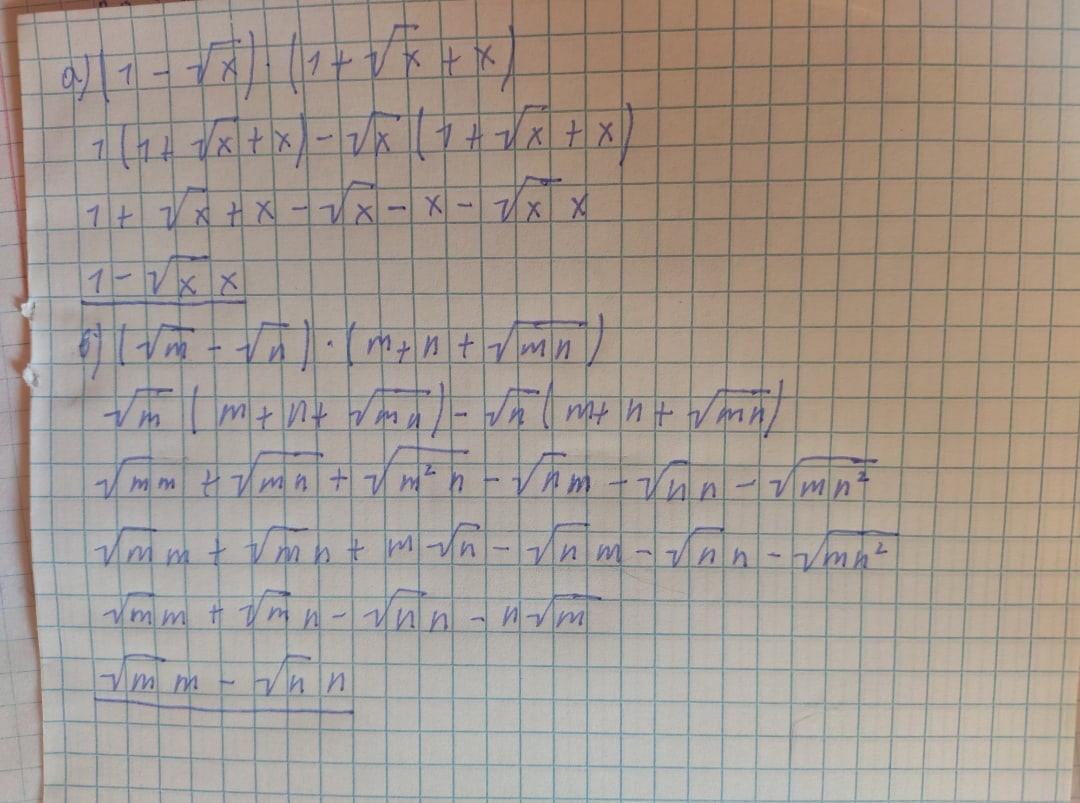 а) (1 - √x) · (1 + √x + x)
1(1 + √x + x) - √x (1 + √x + x)
1 + √x + x - √x - x - √x x
1 - √x x
б) (√m - √n) · (m + n + √mn)
√m (m + n + √mn) - √n (m + n + √mn)
√m m + √mn + √m²n - √n m - √n n - √mn²
√m m + √m n + m √n - √n m - √n n - √mn²
√m m + √m n - √n n - n √m
√m m - √n n